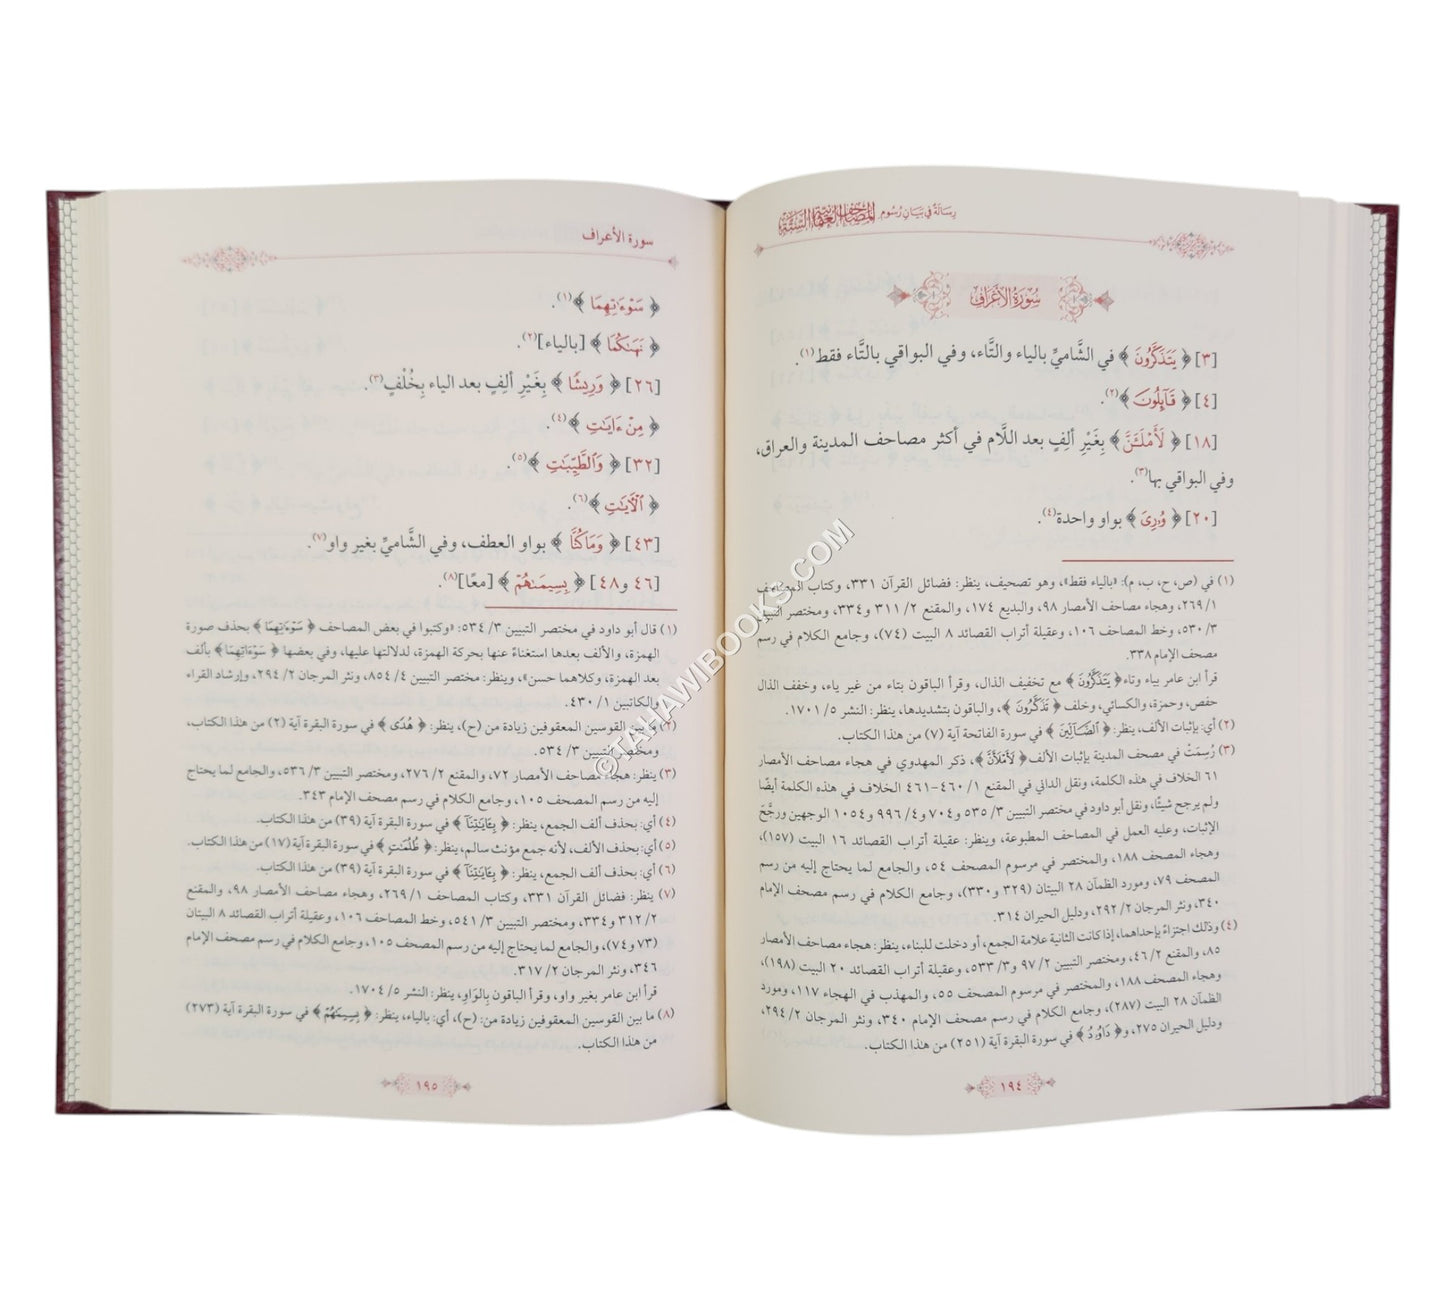 رسالة في بيان رسوم المصاحف العثمانية الستة
سُورَةُ الأَعْرَافِ
[٣] ﴿ يَتَذَكَّرُونَ ﴾ في الشَّاميِّ بالياء والتَّاء، وفي البواقي بالتَّاء فقط(١).
[٤] ﴿ قَآئِلُونَ ﴾(٢).
[١٨] ﴿ لَأَمْلَـَٔنَّ ﴾ بِغَيْرِ ألِفٍ بعد اللَّام في أكثر مصاحف المدينة والعراق،
وفي البواقي بها(٣).
[٢٠] ﴿ وُۥرِيَ ﴾ بواو واحدة(٤).
(١) في (ص، ح، ب، م): «بالياء فقط»، وهو تصحيف، ينظر: فضائل القرآن ٣٣١، وكتاب المصاحف
١/ ٢٦٩، وهجاء مصاحف الأمصار ٩٨، والبديع ١٧٤، والمقنع ٢/ ٣١١ و٣٣٤، ومختصر التبيين
٣/ ٥٣٠، وخط المصاحف ١٠٦، وعقيلة أتراب القصائد ٨ البيت (٧٤)، وجامع الكلام في رسم
مصحف الإمام ٣٣٨.
قرأ ابن عامر بياء وتاء ﴿ يَتَذَكَّرُونَ ﴾ مع تخفيف الذال، وقرأ الباقون بتاء من غير ياء، وخفف الذال
حفص، وحمزة، والكسائي، وخلف ﴿ تَذَكَّرُونَ ﴾، والباقون بتشديدها، ينظر: النشر ٥/ ١٧٠١.
(٢) أي: بإثبات الألف، ينظر: ﴿ ٱلضَّآلِّينَ ﴾ في سورة الفاتحة آية (٧) من هذا الكتاب.
(٣) رُسِمَتْ في مصحف المدينة بإثبات الألف ﴿ لَأَمْلَأَنَّ ﴾، ذكر المهدوي في هجاء مصاحف الأمصار
٦١ الخلاف في هذه الكلمة، ونقل الداني في المقنع ١/ ٤٦٠-٤٦١ الخلاف في هذه الكلمة أيضًا
ولم يرجح شيئًا، ونقل أبو داود في مختصر التبيين ٣/ ٥٣٥ و٧٠٤ و٤/ ٩٩٦ و١٠٥٤ الوجهين ورجَّحَ
الإثبات، وعليه العمل في المصاحف المطبوعة، وينظر: عقيلة أتراب القصائد ١٦ البيت (١٥٧)،
وهجاء المصحف ١٨٨، والمختصر في مرسوم المصحف ٥٤، والجامع لما يحتاج إليه من رسم
المصحف ٧٩، ومورد الظمآن ٢٨ البيتان (٣٢٩ و٣٣٠)، وجامع الكلام في رسم مصحف الإمام
٣٤٠، ونثر المرجان ٢/ ٢٩٢، ودليل الحيران ٣١٤.
(٤) وذلك اجتزاءً بإحداهما، إذا كانت الثانية علامة الجمع، أو دخلت للبناء، ينظر: هجاء مصاحف الأمصار
٨٥، والمقنع ٢/ ٤٦، ومختصر التبيين ٢/ ٩٧ و٣/ ٥٣٣، وعقيلة أتراب القصائد ٢٠ البيت (١٩٨)،
وهجاء المصحف ١٨٨، والمختصر في مرسوم المصحف ٥٥، والمهذب في الهجاء ١١٧، ومورد
الظمآن ٢٨ البيت (٢٨٧)، وجامع الكلام في رسم مصحف الإمام ٣٤٠، ونثر المرجان ٢/ ٢٩٤،
ودليل الحيران ٢٧٥، و﴿ دَاوُۥدُ ﴾ في سورة البقرة آية (٢٥١) من هذا الكتاب.
١٩٤
سورة الأعراف
﴿ سَوْءَٰتِهِمَا ﴾(١).
﴿ نَهَىٰكُمَا ﴾ [بالياء](٢).
[٢٦] ﴿ وَرِيشًا ﴾ بِغَيْرِ ألِفٍ بعد الياء بِخُلْفٍ(٣).
﴿ مِنْ ءَايَـٰتِ ﴾(٤).
[٣٢] ﴿ وَٱلطَّيِّبَـٰتِ ﴾(٥).
﴿ ٱلْـَٔايَـٰتِ ﴾(٦).
[٤٣] ﴿ وَمَا كُنَّا ﴾ بواو العطف، وفي الشَّاميِّ بغير واو(٧).
[٤٦ و٤٨] ﴿ بِسِيمَىٰهُمْ ﴾ [معًا](٨).
(١) قال أبو داود في مختصر التبيين ٣/ ٥٣٤: «وكتبوا في بعض المصاحف ﴿ سَوْءَٰتِهِمَا ﴾ بحذف صورة
الهمزة، والألف بعدها استغناءً عنها بحركة الهمزة، لدلالتها عليها، وفي بعضها ﴿ سَوْءَاتِهِمَا ﴾ بألف
بعد الهمزة، وكلاهما حسن»، وينظر: مختصر التبيين ٤/ ٨٥٤، ونثر المرجان ٢/ ٢٩٤، وإرشاد القراء
والكاتبين ١/ ٤٣٠.
(٢) ما بين القوسين المعقوفين زيادة من (ح)، ينظر: ﴿ هُدًى ﴾ في سورة البقرة آية (٢) من هذا الكتاب،
ومختصر التبيين ٣/ ٥٣٤.
(٣) ينظر: هجاء مصاحف الأمصار ٧٢، والمقنع ٢/ ٢٧٦، ومختصر التبيين ٣/ ٥٣٦، والجامع لما يحتاج
إليه من رسم المصحف ١٠٥، وجامع الكلام في رسم مصحف الإمام ٣٤٣.
(٤) أي: بحذف ألف الجمع، ينظر: ﴿ بِـَٔايَـٰتِنَآ ﴾ في سورة البقرة آية (٣٩) من هذا الكتاب.
(٥) أي: بحذف الألف، لأنه جمع مؤنث سالم، ينظر: ﴿ ظُلُمَـٰتٍ ﴾ في سورة البقرة آية (١٧) من هذا الكتاب.
(٦) أي: بحذف ألف الجمع، ينظر: ﴿ بِـَٔايَـٰتِنَآ ﴾ في سورة البقرة آية (٣٩) من هذا الكتاب.
(٧) ينظر: فضائل القرآن ٣٣١، وكتاب المصاحف ١/ ٢٦٩، وهجاء مصاحف الأمصار ٩٨، والمقنع
٢/ ٣١٢ و٣٣٤، ومختصر التبيين ٣/ ٥٤١، وخط المصاحف ١٠٦، وعقيلة أتراب القصائد ٨ البيتان
(٧٣ و٧٤)، والجامع لما يحتاج إليه من رسم المصحف ١٠٥، وجامع الكلام في رسم مصحف الإمام
٣٤٦، ونثر المرجان ٢/ ٣١٧.
قرأ ابن عامر بغير واو، وقرأ الباقون بِالوَاوِ، ينظر: النشر ٥/ ١٧٠٤.
(٨) ما بين القوسين المعقوفين زيادة من: (ح)، أي: بالياء، ينظر: ﴿ بِسِيمَـٰهُمْ ﴾ في سورة البقرة آية (٢٧٣)
من هذا الكتاب.
١٩٥
©TAHAWIBOOKS.COM